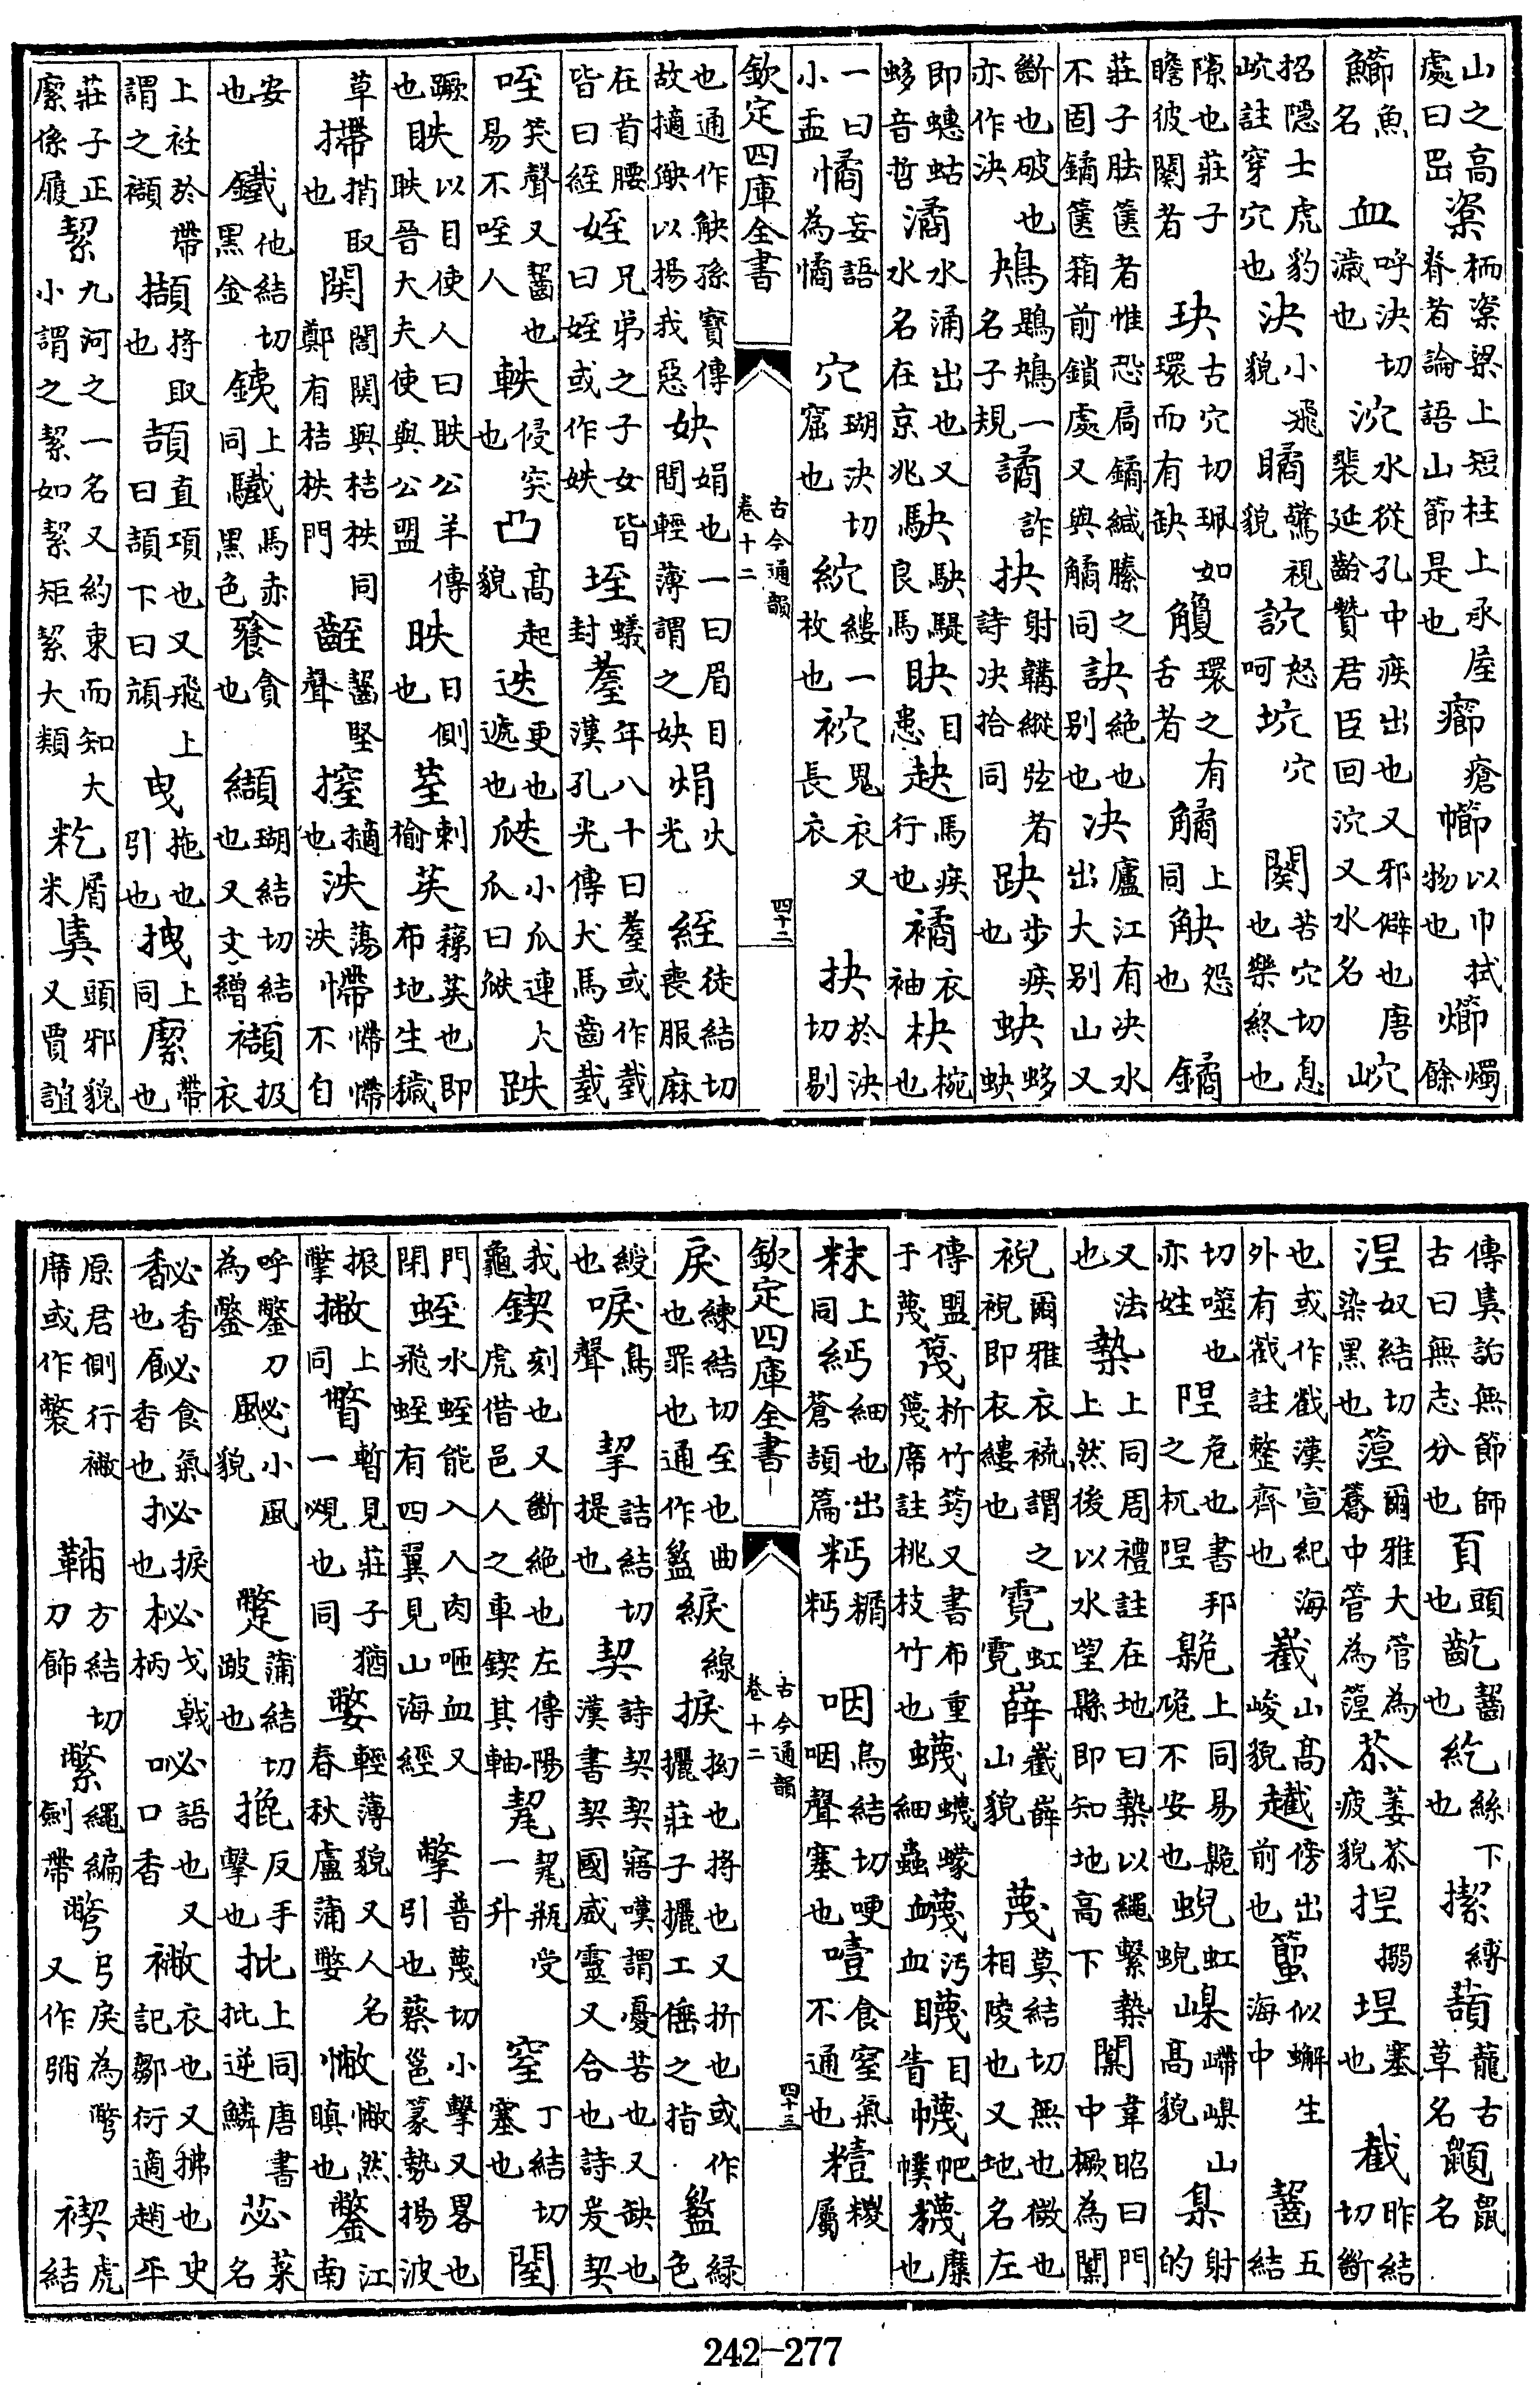 山之高處曰岊楶栭楶梁上短柱上承屋脊者論語山節是也癤瘡㡍以巾拭物也㸅燭餘
䲙魚名血呼決切濊也泬水從孔中疾出也又邪僻也唐裴延齡贊君臣回泬又水名岤
招隱士虎豹岤註穿穴也決小飛貌瞲驚視貌怒呵坹穴闋苦穴切息也樂終也
隙也莊子瞻彼闋者玦古穴切珮如環而有缺觼環之有舌者觿上同觖怨也鐍
莊子胠篋者惟恐扃鐍緘縢之不固鐍篋箱前鎖處又與觿同訣絕也別也決廬江有決水出大別山又
斷也破也亦作決鴂鶗鴂一名子規譎詐抉射韝縱弦者詩決拾同趹步疾也蚗蛥蚗
即蟪蛄蛥音哲潏水涌出也又水名在京兆駃駃騠良馬目患赽馬疾行也衣袖椀也
一曰小盂憰妄語為憰穴瑚決切窟也縷一枚也袕鬼衣又長衣抉於決切剔
欽定四庫全書 古今通韻卷十二 四十二
也通作觖孫寶傳故擿觖以揚我惡妜娟也一曰眉目間輕薄謂之妜焆火光絰徒結切喪服麻
在首腰皆曰絰姪兄弟之子女皆曰姪或作妷垤蟻封耋年八十曰耋或作臷漢孔光傳犬馬齒臷
咥笑聲又齧也易不咥人軼侵突也凸高起貌迭更也遞也瓞小瓜連瓜曰瓞跌
蹶也眣以目使人曰眣公羊傳眣晉大夫使與公盟昳日側也荎刺榆苵蕛苵也即布地生穢
草摕捎取也與桔柣同鄭有桔柣門齧堅聲擿也泆蕩泆慸慸不自
安也鐵他結切黑金銕上同驖馬赤黑色飻貪也纈瑚結切結也又文繒襭扱衣
上衽於帶謂之襭擷將取也頡直項也又飛上曰頡下曰頏曳拖也引也拽上同帶也
莊子正係履絜九河之一名又約束而知大小謂之絜如絜矩絜大類籺屑米奊頭邪貌又賈誼
傳奊詬無節師古曰無志分也頁頭也齕齧也紇絲下也㨗縛䕸龍古草名鼠名
涅奴結切染黑也篞爾雅大管為簥中管為篞苶萎苶疲貌捏搦塞也截昨結切斷
也或作𢧵漢宣紀海外有截註整齊也嶻山高峻貌傍出前也䘁似蠏生海中齧五結
切噬也亦姓隉危也書邦之杌隉臲上同易臲卼不安也蜺虹蜺嵲㟞嵲山高貌臬射的
又法也槷上同周禮註在地曰槷以繩繫槷上然後以水望縣即知地高下闑韋昭曰門中橛為闑
䘽爾雅衣䘯謂之䘽即衣縷也霓虹霓嶭嶻嶭山貌蔑莫結切無也微也相陵也又地名左
傳盟于蔑篾析竹筠又書布重篾席註桃枝竹也蠛蠛蠓細蟲衊污血目眥幭帊幞糜也
粖上同細也出蒼頡篇糏咽烏結切哽咽聲塞也噎食窒氣不通也糉屬
欽定四庫全書 古今通韻卷十二 四十三
戾練結切至也曲也罪也通作盭綟線捩拗也捋也又折也或作攦莊子攦工倕之指盭綠色
綬也唳鳥聲挈詰結切提也契詩契契寤嘆謂憂苦也又缺也漢書契國威靈又合也詩爰契
我龜鍥刻也又斷絕也左傳陽虎借邑人之車鍥其軸瓶受一升窒丁結切塞也閏
門閉蛭水蛭能入人肉咂血又飛蛭有四翼見山海經撆普蔑切小擊又略也引也蔡邕篆勢揚波
振撆撇上同瞥暫見莊子猶一覕也同嫳輕薄貌又人名春秋盧蒲嫳憋憋然瞋也鐅江南
呼鐅刀為鐅颮小風貌蹩蒲結切跛也反手擊也批上同唐書批逆鱗苾菜名
馝香香也飶食氣香也捩也柲戈戟柄語也又口香襒衣也又拂也史記鄒衍適趙平
原君側行襒席或作𢅩方結切刀飾繩編劍帶弓戾為又作弻䙆虎結
242-277